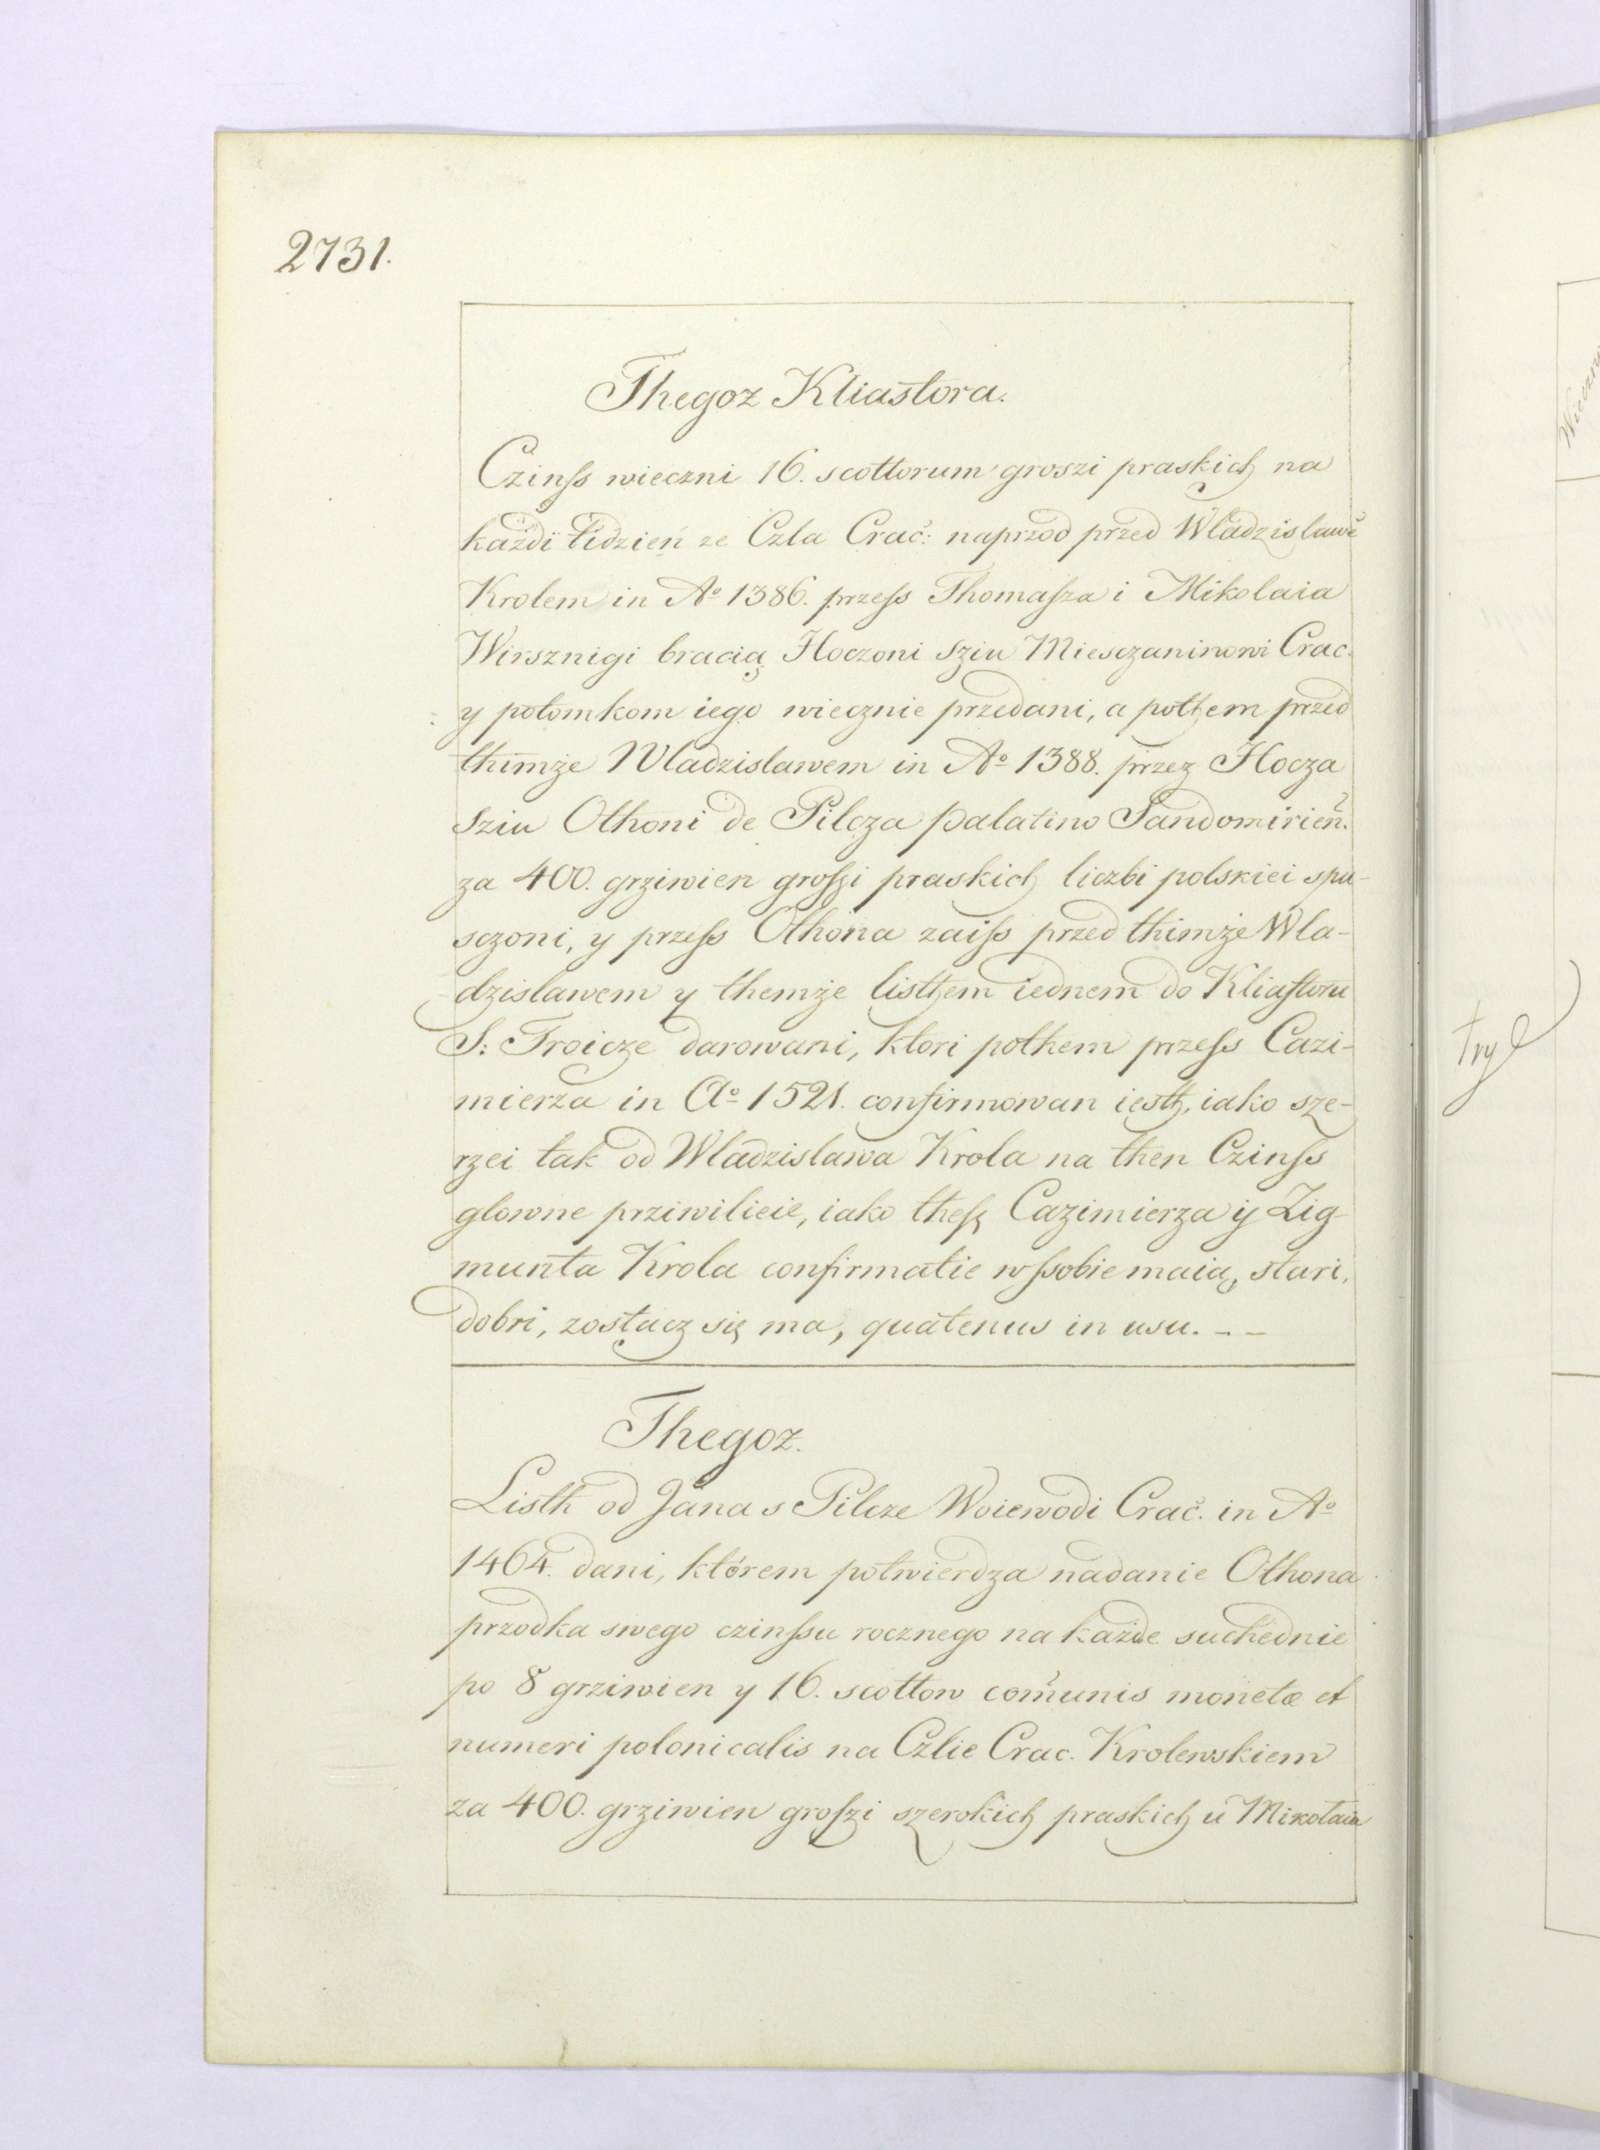 2731.
Thegoz Kliastora.
Czinss wieczni 16. scottorum groszi praskich na
każdi tidzień ze Czla Crac: naprzod przed Wladzislawē
Krolem in Aº 1386. przess Thomasza i Mikolaia
Wirsznigi bracią Hoczoni Sziu Miesczaninowi Crac.
y potomkom iego wiecznie przedani, a pothem przed
thimże Wladzislawem in Aº 1388. przez Hocza
Sziu Othoni de Pilcza palatino Sandomirień.
za 400. grziwien groszi praskich liczbi polskiei spu-
sczoni, y przess Othona zaiss przed thimże Wla-
dzislawem y themże listhem iednem do Kliastoru
S: Troicze darowani, ktori pothem przess Cazi-
mierza in Aº 1521. confirmowan iesth, iako sze-
rzei tak od Wladzislawa Krola na then Czinss
glowne prziwilieie, iako thesz Cazimierza ij Zig
munta Krola confirmatie w ssobie maią, stari,
dobri, zostacz się ma, quatenus in usu. – –
Thegoz.
Listh od Jana s Pilcze Woiewodi Crac. in Aº
1464. dani, którem potwierdza nadanie Othona
przodka swego czinssu rocznego na każde suchednie
po 8 grziwien y 16. scottow com̃unis monetæ et
numeri polonicalis na Czlie Crac. Krolewskiem
za 400. grziwien groszi szerokich praskich u Mikołaia